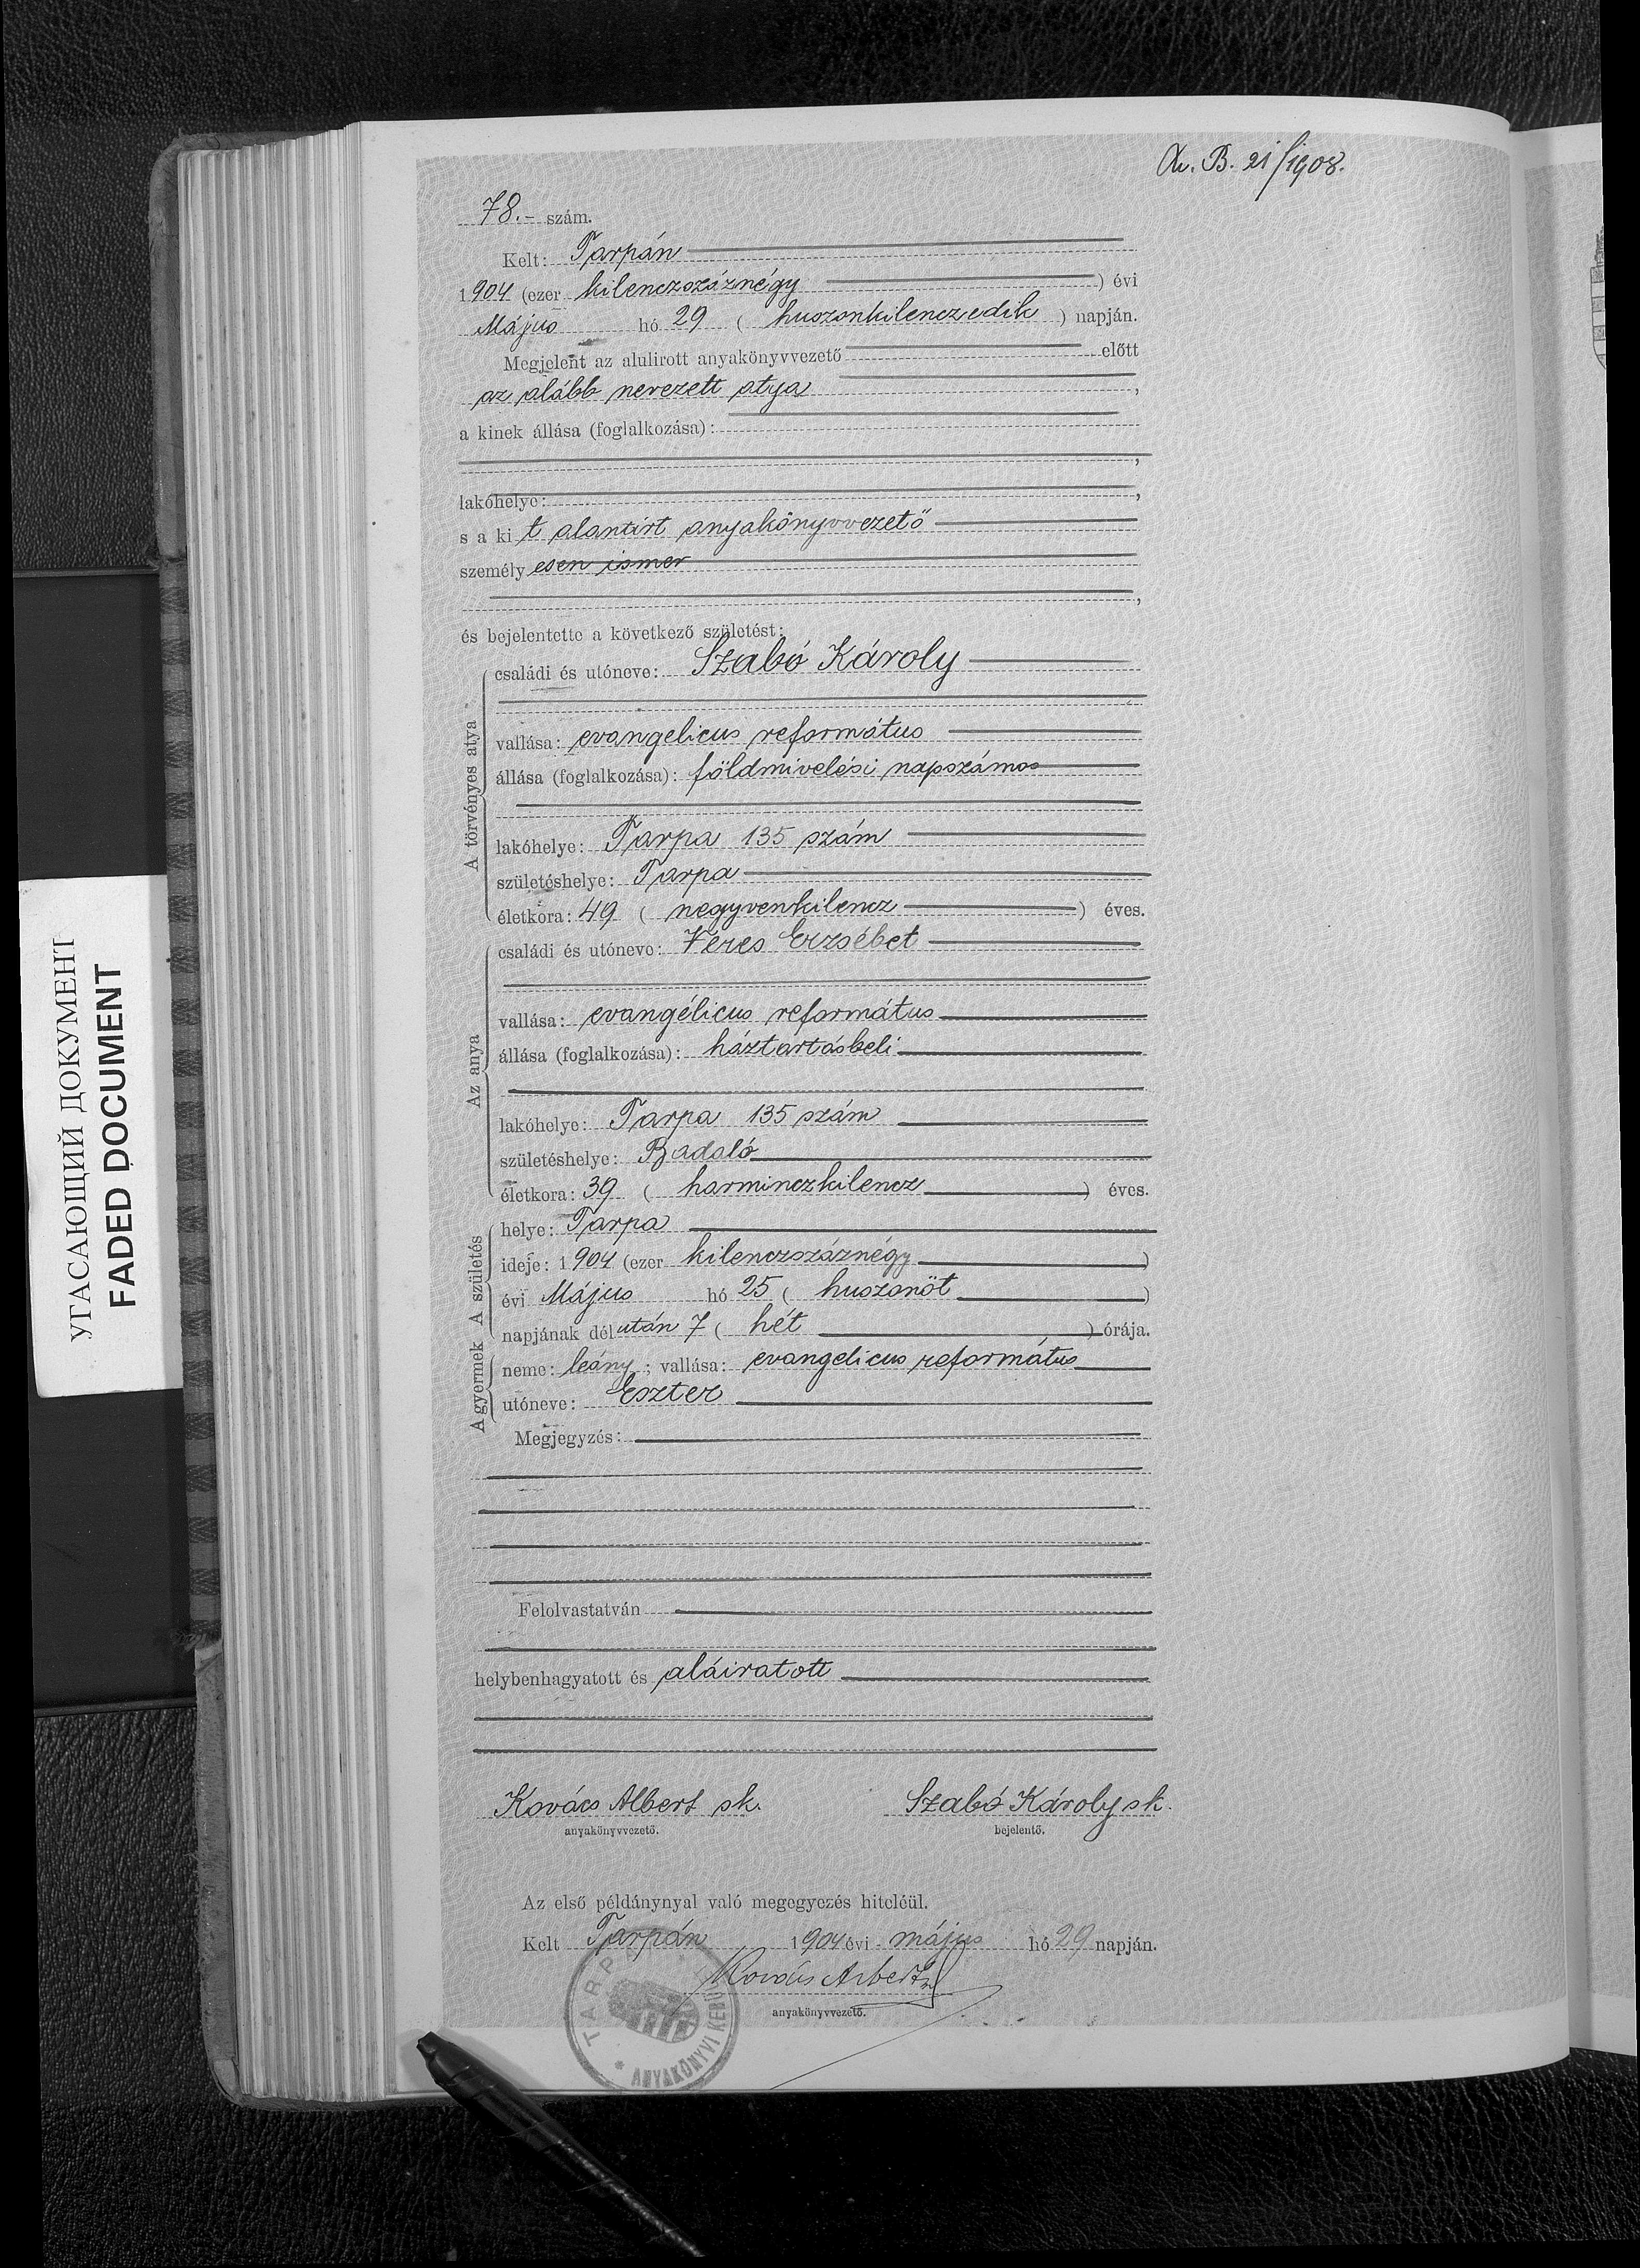 Av. B. 21/1908.
78.- szám.
Kelt: Tarpán
1904 (ezer kilenczszáznégy ) évi
Május hó 29 ( huszonkilenczedik ) napján.
Megjelent az alulirott anyakönyvvezető előtt
az alább nevezett atya ,
a kinek állása (foglalkozása):
,
lakóhelye: ,
s a ki t alantirt anyakönyvvezető
személy esen ismer
,
és bejelentette a következő születést:
A törvényes atya
családi és utóneve: Szabó Károly
vallása: evangelicus református
állása (foglalkozása): földmivelési napszámos
lakóhelye: Tarpa 135 szám
születéshelye: Tarpa
életkora: 49 ( negyvenkilencz ) éves.
Az anya
családi és utóneve: Veres Erzsébet
vallása: evangélicus református
állása (foglalkozása): háztartásbeli
lakóhelye: Tarpa 135 szám
születéshelye: Badaló
életkora: 39 ( harminczkilencz ) éves.
A születés
helye: Tarpa
ideje: 1904 (ezer kilenczszáznégy )
évi Május hó 25 ( huszonöt )
napjának dél után 7 ( hét ) órája.
A gyermek
neme: leány ; vallása: evangelicus református
utóneve: Eszter
Megjegyzés:
Felolvastatván
helybenhagyatott és aláiratott
Kovács Albert sk. Szabó Károly sk.
anyakönyvvezető. bejelentő.
Az első példánynyal való megegyezés hiteléül.
Kelt Tarpán 1904 évi május hó 29 napján.
Kovács Albert
anyakönyvvezető.
TARPA ANYAKÖNYVI
УГАСАЮЩИЙ ДОКУМЕНТ
FADED DOCUMENT